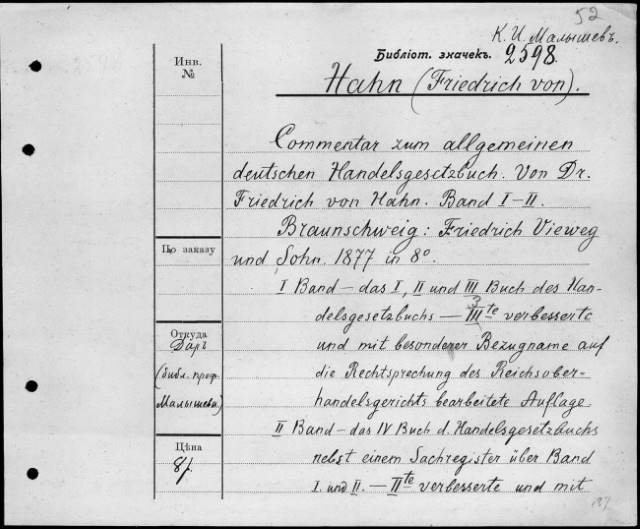 52
К. И. Малышевъ.
Инв.
№
Библіот. значекъ. 2598.
Hahn (Friedrich von).
Commentar zum allgemeinen
deutschen Handelsgesetzbuch. Von Dr.
Friedrich von Hahn. Band I-II.
Braunschweig: Friedrich Vieweg
По заказу
und Sohn. 1877 in 8º.
I Band – das I, II und III Buch des Han-
delsgesetzbuchs – III te verbesserte
3
Откуда
Даръ
(библ. проф.
Малышева)
und mit besonderer Bezugname auf
die Rechtsprechung des Reichsober-
handelsgerichts bearbeitete Auflage
II Band – das IV Buch d. Handelsgesetzbuchs
Цѣна
8/.
nebst einem Sachregister über Band
I. und II. – II te verbesserte und mit